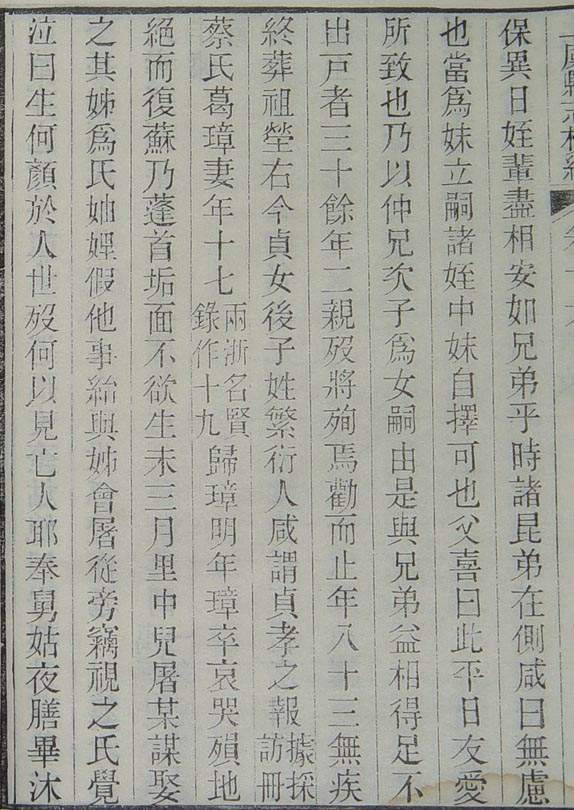 上虞縣志校續
保異日姪輩盡相安如兄弟乎時諸昆弟在側咸曰無慮
也當爲妹立嗣諸姪中妹自擇可也父喜曰此平日友愛
所致也乃以仲兄次子爲女嗣由是與兄弟益相得足不
出戸者三十餘年二親歿將殉焉勸而止年八十三無疾
終葬祖塋右今貞女後子姓繁衍人咸謂貞孝之報據採訪冊
蔡氏葛璋妻年十七兩浙名賢錄作十九歸璋明年璋卒哀哭殞地
絕而復蘇乃蓬首垢面不欲生未三月里中兒屠某謀娶
之其姊爲氏妯娌假他事紿與姊會屠從旁竊視之氏覺
泣曰生何顏於人世歿何以見亡人耶奉舅姑夜膳畢沐